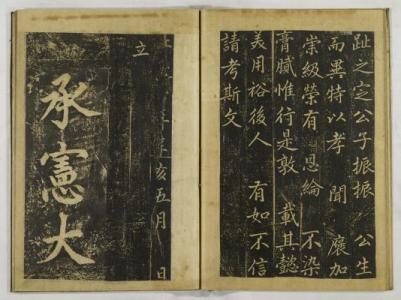 趾之定公子振振　公生
而異特以孝　聞　廕加
崇級榮有　恩綸　不染
膏膩惟行是敦　載其懿
美用裕後人　有如不信
請考斯文
亥五月　日
立
承憲大